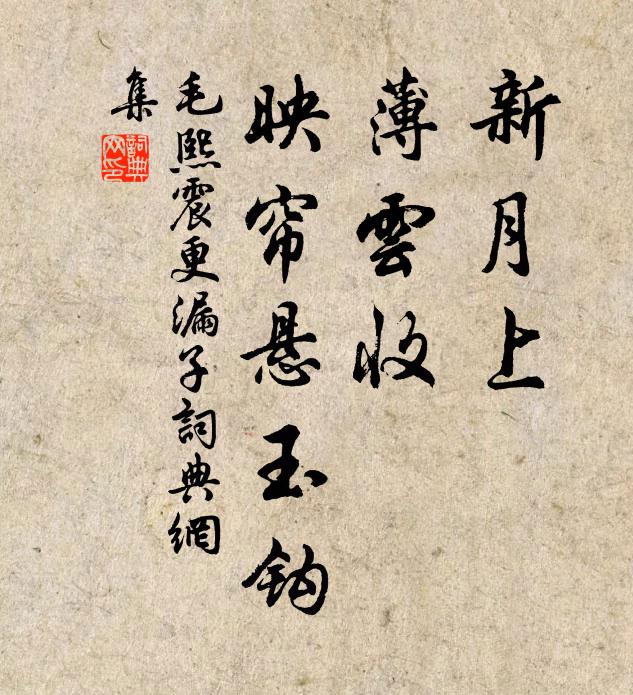 新月上
薄雲收
映帘悬玉钩
毛熙震更漏子詞典網
集
詞典
网印